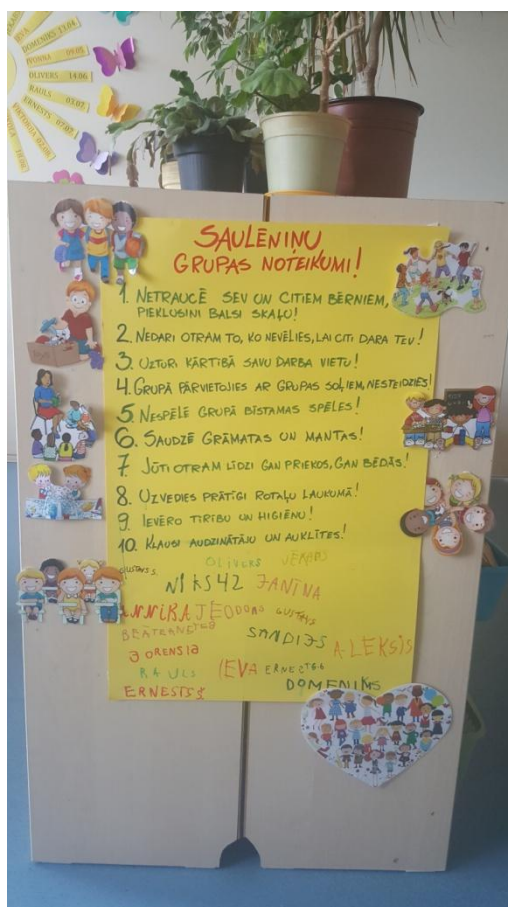 IEVA
DOMENIKS 13.04
IVONNA 09.05
OLIVERS 14.06
RAULS 03.07
ERNESTS 07.07
VIKTORIJA 02.08
SAULĒNIŅU
GRUPAS NOTEIKUMI!
1. NETRAUCĒ SEV UN CITIEM BĒRNIEM,
PIEKLUSINI BALSI SKAĻU!
2. NEDARI OTRAM TO, KO NEVĒLIES, LAI CITI DARA TEV!
3. UZTURI KĀRTĪBĀ SAVU DARBA VIETU!
4. GRUPĀ PĀRVIETOJIES AR GRUPAS SOĻIEM, NESTEIDZIES!
5. NESPĒLĒ GRUPĀ BĪSTAMAS SPĒLES!
6. SAUDZĒ GRĀMATAS UN MANTAS!
7 JŪTI OTRAM LĪDZI GAN PRIEKOS, GAN BĒDĀS!
8. UZVEDIES PRĀTĪGI ROTAĻU LAUKUMĀ!
9. IEVĒRO TĪRĪBU UN HIGIĒNU!
10. KLAUSI AUDZINĀTĀJU UN AUKLĪTES!
GUSTAVS S. OLIVERS JĒKABS
NIKS42 JANĪNA
ANNIKA TEODORO GUSTAVS
BEĀTE SANDIJS ALEKSIS
RAULS IEVA
ERNESTS DOMENIKS